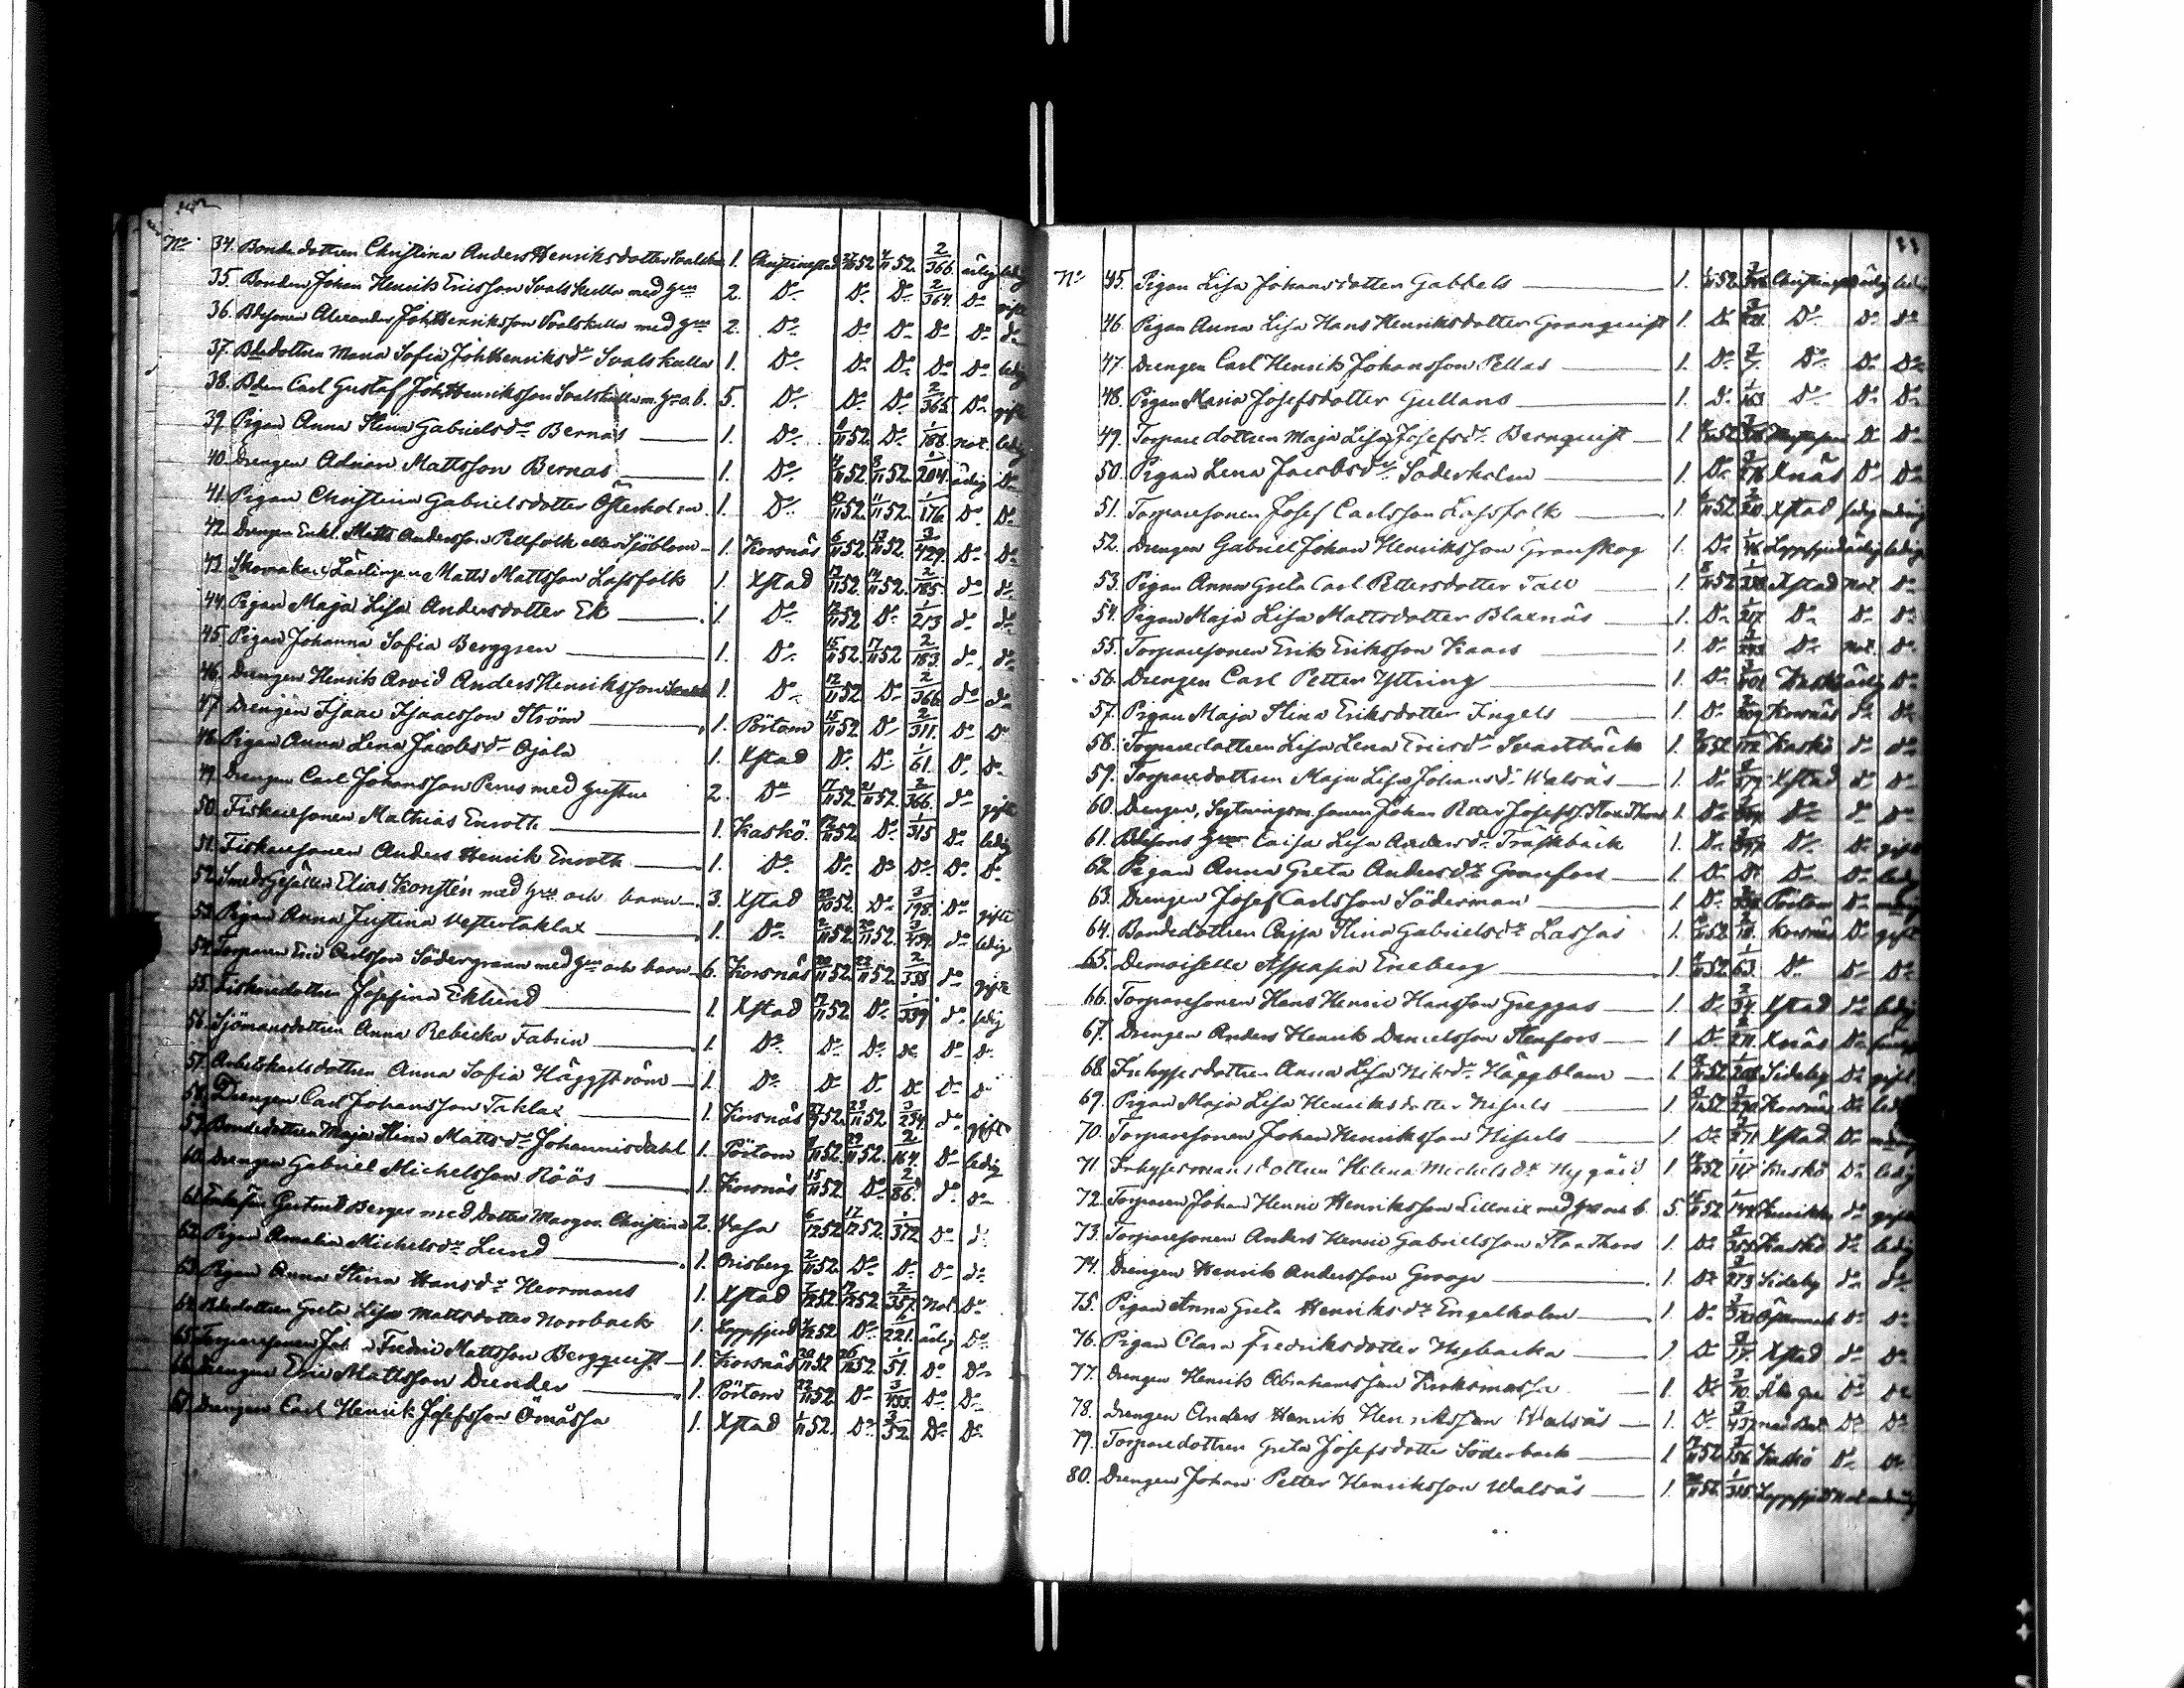 No 34. Bondedottren Christina Anders Henriksdotter 1. Christinestad 52 52. 2/366. ärlig ledig
35. Bonden Johan Henrik Ericsson Svalskulla med hu 2. Do Do Do 2/364. Do gifte
36. Bdesonen Alexander Joh Henriksson Svalskulla med 2. Do Do Do Do Do d
37. Bdedottren Maria Sofia Joh Henriksdr Svalskulla 1. Do Do Do Do Do ledig
38. Bden Carl Gustaf Joh Henriksson Svalskulla m. o. b. 5. Do Do Do 2/365. Do gifte
39. Pigan Anna Stina Gabrielsdr Bernas 1. Do 52. Do 1/188. not. ledig
40. Drengen Adrian Mattsson Bernas 1. Do 4/11 52. 8/11 52. 1/204. ärlig Do
41. Pigan Christina Gabrielsdotter Österholm 1. Do 10/11 52. 11/11 52. 1/176. Do Do
42. Drengen Enkl. Matts Andersson Pellfolk eller Sjöblom 1. Korsnäs 6/11 52. 13/11 52. 3/429. Do Do
43. Skomakari Lärlingen Matts Mattsson Lassfolk 1. Xstad 13/11 52. 14/11 52. 2/185. do do
44. Pigan Maja Lisa Andersdotter Ek 1. Do 52 Do 1/213 do do
45. Pigan Johanna Sofia Berggren 1. Do 15/11 52. 17/11 52 2/183. do do
46. Drengen Henrik Arvid Anders Henriksson 1. Do 12/11 52. Do 2/366 do do
47. Drengen Isaac Isaacsson Ström 1. Pörtom 15/11 52 Do 2/311. Do Do
48. Pigan Anna Lena Jacobsdr Ojala 1. Xstad Do Do 1/61. Do Do
49. Drengen Carl Johansson Perus med hustru 2. Do 17/11 52. 21/11 52. 2/366. do gifte
50. Fiskaresonen Mathias Enroth 1. Kaskö. 52. Do 1/315 Do ledig
51. Fiskaresonen Anders Henrik Enroth 1. Do Do Do Do Do Do
52. Smeds Gesällen Elias Korstén med och barn 3. Xstad 52. Do 3/198. Do gifte
53. Pigan Anna Justina Vestertaklax 1. Do 2/11 52. 20/11 52. do ledig
54. Torparen Eric Carlsson Södergrann med och barn 6. Korsnäs 20/11 52. 22/11 52. 2/338 do gifte
55. Fiskaredottren Josefina Eklund 1. Xstad 52. Do 1/339 do ledig
56. Sjömansdottren Anna Rebecka Fabrin 1. Do Do Do do Do Do
57. Arbetskarlsdottren Anna Sofia Häggström 1. Do Do Do Do Do Do
58. Drengen Carl Johansson Taklax 1. Korsnäs 52. 23/11 52 3/234. do gifte
59. Bondedottren Maja Stina Mattsdr Johannisdahl 1. Pörtom 52. 29/11 52. 2/164. Do ledig
60. Drengen Gabriel Michelsson Röös 1. Korsnäs 15/11 52. Do 2/86. do Do
61. Enkefru Gertrud Berger med Dotter Margar. Christina 2. Vasa 6/12 52 12/12 52. 1/372 Do d
62. Pigan Amalia Michelsdr Lund 1. Orisberg 2/11 52. Do Do Do do
63. Pigan Anna Stina Hansdr Herrmans 1. Xstad 7/12 52. 12/12 52. 2/357. Not. Do
64. Bdedottren Greta Lisa Mattsdotter Norrback 1. Lappfjerd 52. Do 221. ärlig Do
65. Torparesonen Joh Fredric Mattsson Bergquist 1. Korsnäs 20/11 52 26/12 52. 1/51. Do Do
66. Drengen Eric Mattsson Drender 1. Pörtom 22/11 52. Do 3/433. Do Do
67. Drengen Carl Henrik Josefsson Ömossa 1. Xstad 1/11 52. Do 3/52. Do Do
No 45. Pigan Lisa Johansdotter Gabbels 1. 52. Christinestad ärlig ledig
46. Pigan Anna Lisa Hans Henriksdotter Granquist 1. Do 221. Do Do Do
47. Drengen Carl Henrik Johansson Pellas 1. Do 2/7. Do Do Do
48. Pigan Maria Josefsdotter Gullans 1. Do 1/163 Do Do Do
49. Torparedottren Maja Lisa Josefsdr Bernquist 1 52 Do Do
50. Pigan Lena Jacobsdr Söderholm 1. Do 276 Xnäs Do Do
51. Torparesonen Josef Carlsson Lassfolk 1. 6/11 52 Xstad
52. Drengen Gabriel Johan Henriksson Granskog 1. Do Lappfjerd ärlig ledig
53. Pigan Anna Greta Carl Pettersdotter Tall 1. 8/11 52 Xstad Not. Do
54. Pigan Maja Lisa Mattsdotter Blaxnäs 1. Do 1/217. Do Do Do
55. Torparesonen Erik Eriksson Kaars 1. Do 243 Do Not. Do
56. Drengen Carl Petter Yttring 1. Do 401 ärlig Do
57. Pigan Maja Stina Eriksdotter Ingels 1. Do Korsnäs do Do
58. Torparedottren Lisa Lena Ericsdr Svartbäck 1. 52 172 Kaskö do do
59. Torparedottren Maja Lisa Johansdr Walsäs 1. Do 377 Xstad do Do
60. Drengen, Johan Petter Josefss. Storthors 1. Do Do Do Do
61. Bdesons Caisa Lisa Andersdr Träskbäck 1. Do Do Do gift
62. Pigan Anna Greta Andersdr Granfors 1. Do Do Do Do ledig
63. Drengen Josef Carlsson Söderman 1. Do Pörtom Do
64. Bondedottren Cajsa Stina Gabrielsdr Lassas 1. 52 Korsnäs Do gift
65. Demoiselle Aspasia Eneberg 1. 52 1/63. Do Do Do
66. Torparesonen Hans Henric Hansson Greggas 1. Do 2/34. Xstad do ledig
67. Drengen Anders Henrik Danielsson Stenfors 1 Do 271. Xnäs Do
68. Inhysesdottren Anna Lisa Nilsdr Häggblom 1. 52 Sideby Do gift
69. Pigan Maja Lisa Henriksdotter Nissils 1 52 Korsnäs Do ledig
70. Torparesonen Johan Henriksson Nissils 1. Do 271 Xstad Do
71. Inhysesmansdottren Helena Michelsdr Nygård 1. 52 Kaskö Do ledig
72. Torparen Johan Henric Henriksson Lillnix med o. b. 5. 52 do gift
73. Torparesonen Anders Henric Gabrielsson Storthors 1. Do Kaskö do ledig
74. Drengen Henrik Andersson Groop 1. Do 273 Sideby do do
75. Pigan Anna Greta Henriksdr Engelholm 1. Do Do Do
76. Pigan Clara Fredriksdotter Nybacka 1 Do 2/17. Xstad do Do
77. Drengen Henrik Abrahamsson 1. Do 70. Do Do
78. Drengen Anders Henrik Henriksson Walsäs 1. Do 437 Do Do
79. Torparedottren Greta Josefsdotter Söderback 1 52 156 Kaskö Do Do
80. Drengen Johan Petter Henriksson Walsäs 1. 52. 1/315. Lappfjerd Not